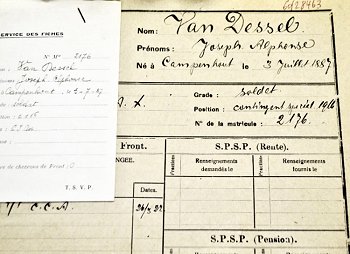 SERVICE DES FICHES
N° Mle 2176
Nom : Van Dessel
Joseph Alphonse
Campenhout 2-7-87
Soldat
ure de chevrons de Front : 0
T. S. V. P.
Nom : Van Dessel
Prénoms : Joseph Alphonse
Né à Campenhout le 3 Juillet 1887
Grade : soldat
Position : contingent spécial 1916
N° de la matricule : 2176.
Front.
Dates.
C.C.A.
S.P.S.P. (Route).
Fractions
Renseignements demandés le
Fractions
Renseignements fournis le
S.P.S.P. (Pension).